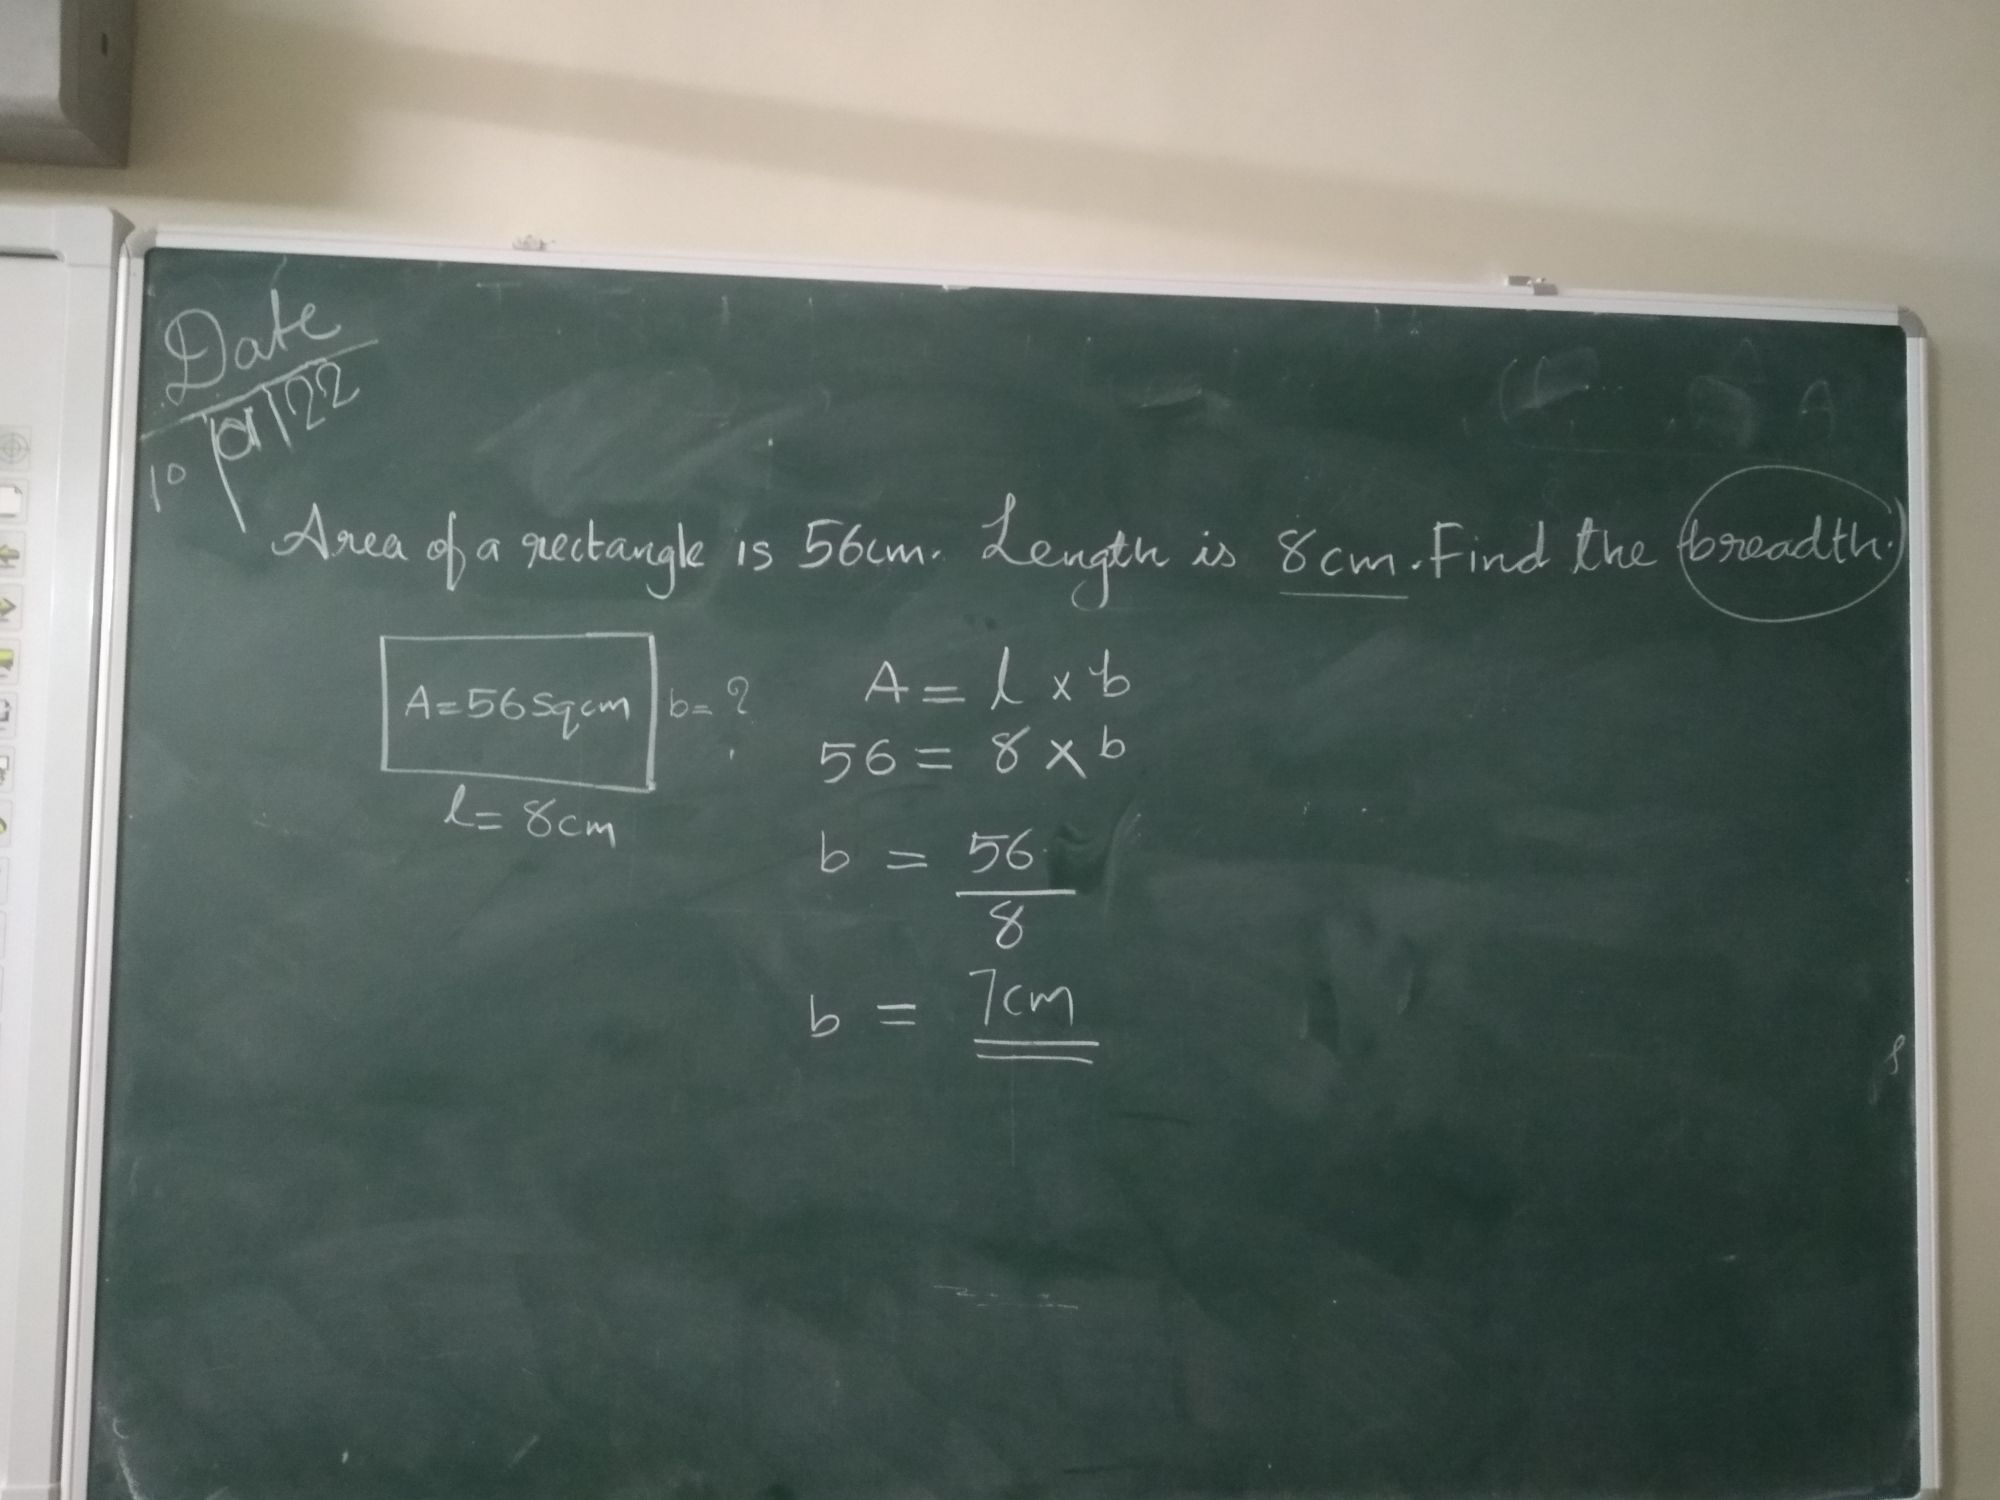 Date
10/01/22
Area of a rectangle is 56cm. Length is 8cm. Find the breadth.
A=56sqcm b=?
l=8cm
A = l x b
56 = 8 x b
b = 56
8
b = 7cm